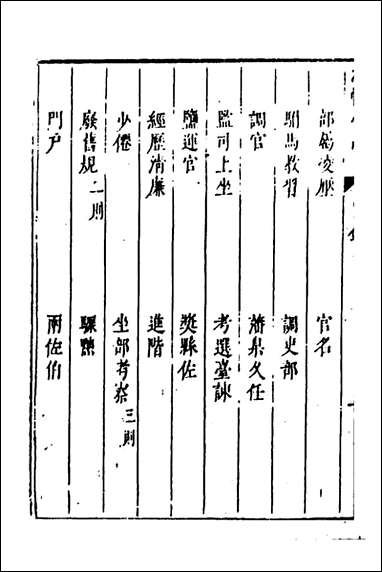 部屬凌歷　官名
駙馬教習　調吏部
調官　藩臬久任
監司上坐　考選臺諫
鹽運官　獎縣佐
經歷清廉　進階
少倦　坐部考察三則
廢舊規二則　驟黜
門戶　兩佐伯